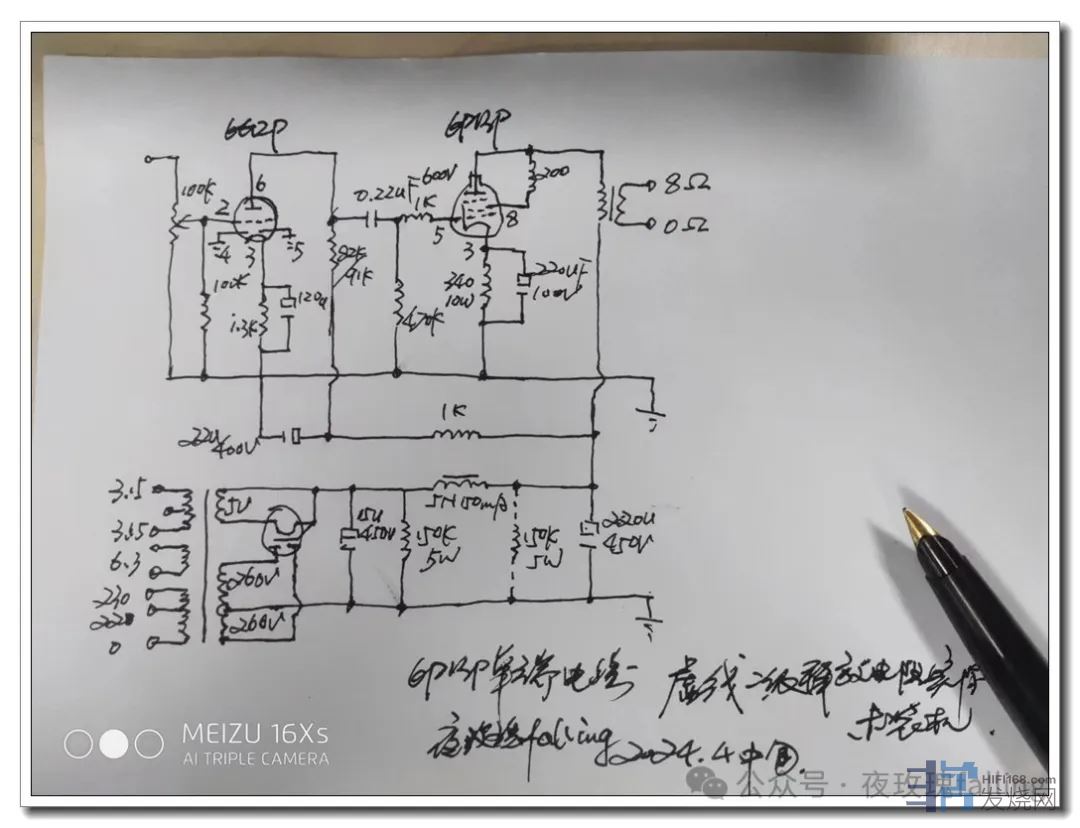 6G2P
6P13P
6
100K
2
4
3
5
100K
1.3K
120u
0.22uF
600V
82K
91K
1K
5
470K
3
8
200
340
10W
220uF
100V
8Ω
0Ω
22u
400V
1K
3.5
3.150
6.3
230
220
0
5V
260V
260V
15u
450V
150K
5W
5H 150mA
150K
5W
220u
450V
单端电路
虚线二级释放电阻实际
未装机.
夜玫瑰taling
2024.4中国.
MEIZU 16Xs
AI TRIPLE CAMERA
公众号 · 夜玫瑰
HIFI168.com
发烧网